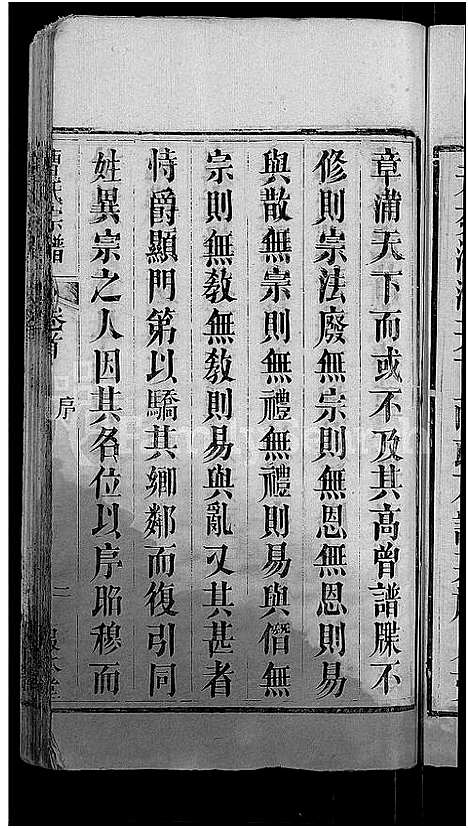 章滿天下而或不及其高曾譜牒不
修則宗法廢無宗則無恩無恩則易
與散無宗則無禮無禮則易與僭無
宗則無教無教則易與亂又其甚者
恃爵顯門第以驕其鄉鄰而復引同
姓異宗之人因其各位以序昭穆而
曹氏宗譜 卷首 序